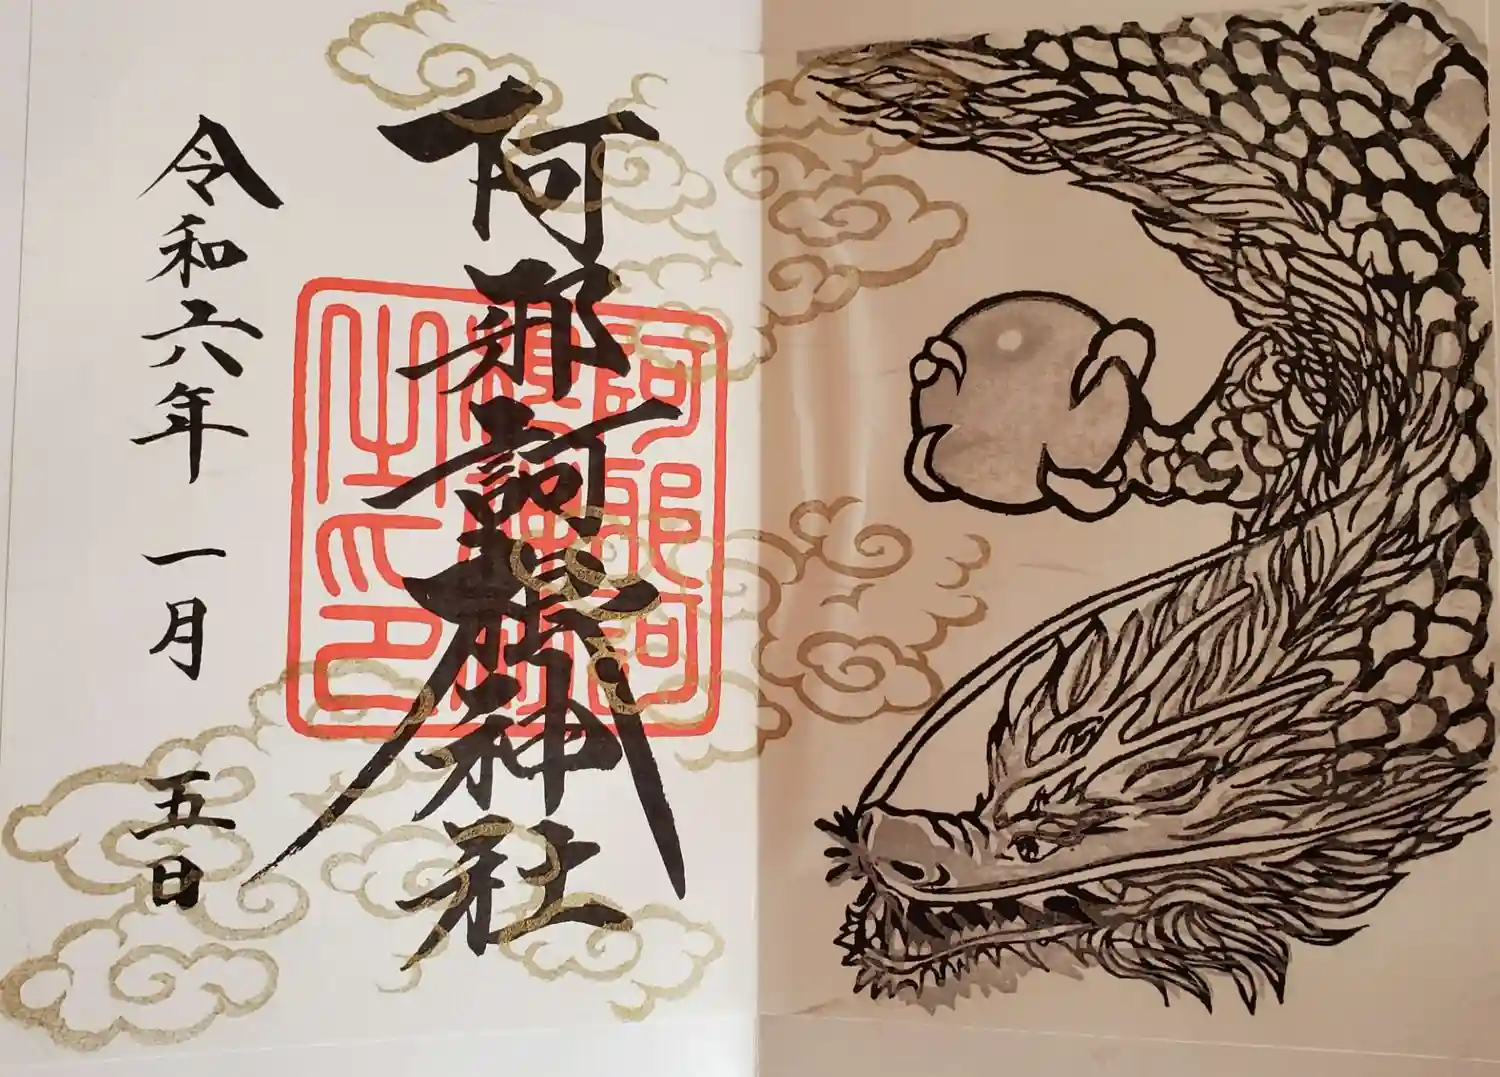 阿邪訶根神社
令和六年一月五日
阿邪訶
根神社
之印